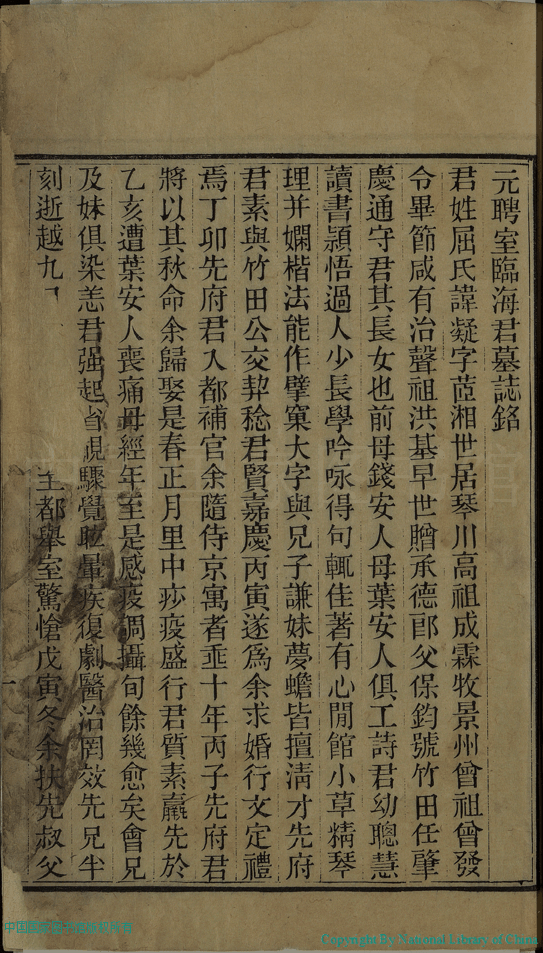 元聘室臨海君墓誌銘
君姓屈氏諱凝字茝湘世居琴川高祖成霖牧景州曾祖曾發
令畢節咸有治聲祖洪基早世贈承德郎父保鈞號竹田任肇
慶通守君其長女也前母錢安人母葉安人俱工詩君幼聰慧
讀書穎悟過人少長學吟咏得句輒佳著有心閒館小草精琴
理并嫻楷法能作擘窠大字與兄子謙妹夢蟾皆擅清才先府
君素與竹田公交契稔君賢嘉慶丙寅遂為余求婚行文定禮
焉丁卯先府君入都補官余隨侍京寓者垂十年丙子先府君
將以其秋命余歸娶是春正月里中痧疫盛行君質素羸先於
乙亥遭葉安人喪痛母經年至是感疫調攝旬餘幾愈矣會兄
及妹俱染恙君强起省視驟覺眩暈疾復劇醫治罔效先兄半
刻逝越九 都舉室驚愴戊寅冬余扶先叔父
一
Copyright By National Library of China